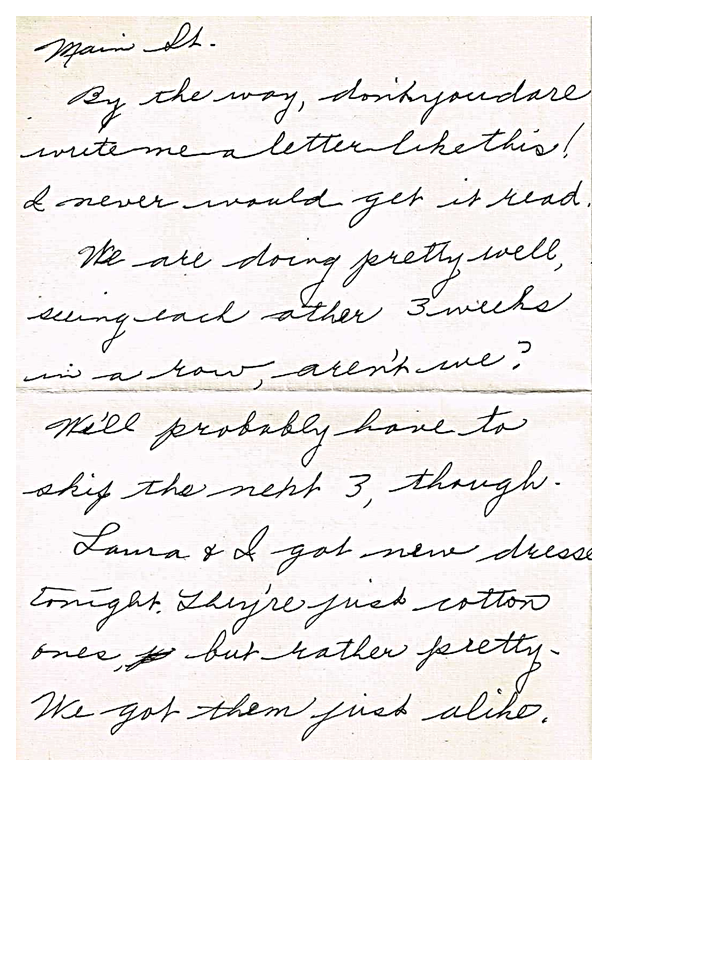 Main St.
By the way, don't you dare
write me a letter like this!
I never would get it read.
We are doing pretty well,
seeing each other 3 weeks
in a row, aren't we?
We'll probably have to
skip the next 3, though.
Laura & I got new dresse
tonight. They're just cotton
ones, but rather pretty.
We got them just alike.